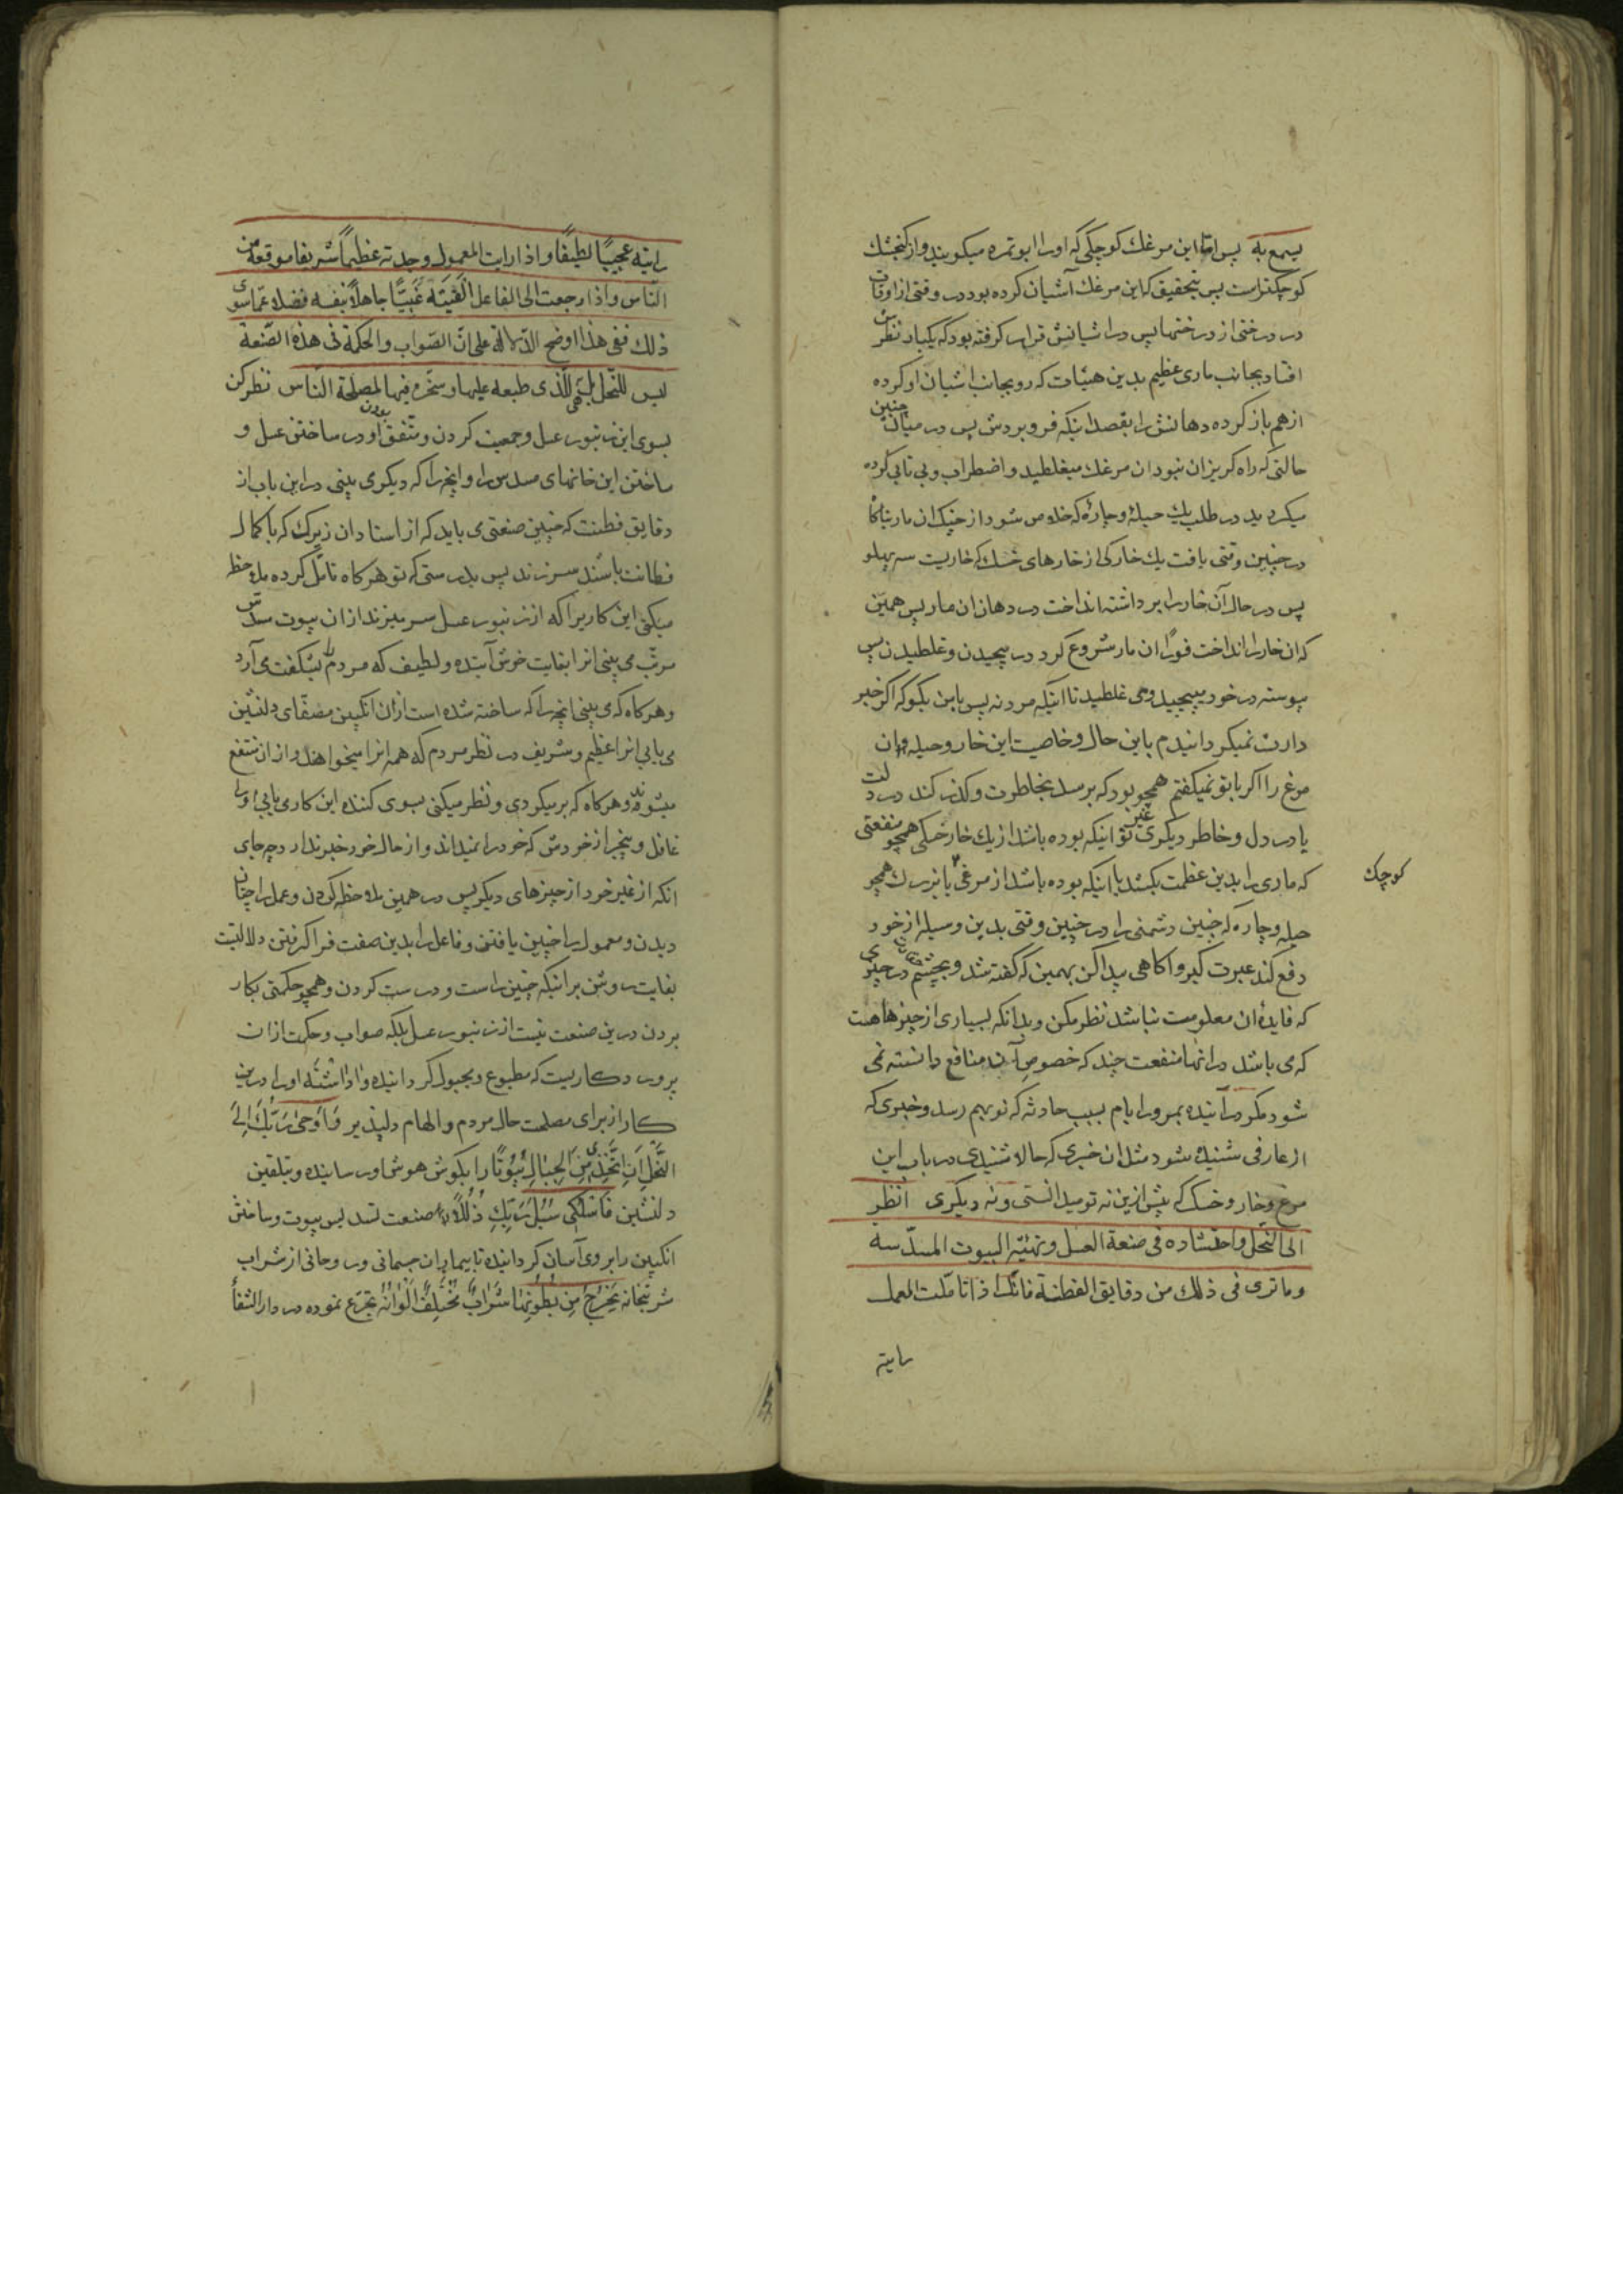 یسمع به پس اما این مرغك كوچكی كه اورا ابوتمره میكویند واز كنجشك
كوچكتر است پس بتحقیق كه این مرغك آشیان كرده بود در وقتی از اوقات
در درختی از درختها پس در اشیانش قرار كرفته بود كه یكبار نظرش
افتاد بجانب ماری عظیم بدین هیئات كه رو بجانب اشیان او كرده
از هم باز كرده دهانش را بقصد اینكه فرو بردش پس در میان چنین
حالتی كه راه كریزان نبود ان مرغك میغلطید و اضطراب و بی تابی كرده
میكردید در طلب یك حیلهٔ و چارهٔ كه خلاص شود از چنك ان مار تا ناكاه
در چنین وقتی یافت یك خاركی از خارهای خسك كه خاریست سه پهلو
پس در حال آن خار را برداشته انداخت در دهان ان مار پس همین
كه ان خار را انداخت فورًا ان مار شروع كرد در پیچیدن و غلطیدن پس
پیوسته در خود میپیچید و می غلطید تا آنكه مرد نه پس باین بكو كه اكر خبر
دارت نمیكردانیدم باین حال و خاصیت این خار و حیله وان
مرغ را اكر با تو نمیكفتم همچو بود كه برسد بخاطرت و كذر كند در دلت
یا در دل و خاطر دیكری غیر تو اینكه بوده باشد از یك خار خسكی همچو منفعتی
كه ماری را بدین عظمت بكشد یا اینكه بوده باشد از مرغی یا بزرك همچو
كوچك
حیله و چاره كه چنین دشمنی را در چنین وقتی بدین وسیله از خود
دفع كند عبرت كیر و اكاهی پیدا كن بهمین كه كفته شد و بچشم حقارت در چیزی
كه فایدهٔ ان معلومت نباشد نظر مكن و بدانكه بسیاری از چیزها هست
كه می باشد در انها منفعت چند كه خصوص آن منافع دانسته نمی
شود مكر در آینده بمرور ایام بسبب حادثه كه نو بهم رسد و خبری كه
از عارفی شنیده شود مثل ان خبری كه حالا شنیدی در باب این
مرغ و خار و خسك كه پیش ازین نه تو میدانستی و نه دیكری انظر
الی النحل واحتشاده فی صنعة العسل وتهیّة البیوت المسدّسة
وما تری فی ذلك من دقایق الفطنة فانّك اذا تامّلت العمل
رایته
رایته عجیبًا لطیفًا واذا رایت المعمول وجدته عظیمًا شریفا موقعه من
النّاس واذا رجعت الی الفاعل الفیته غبیًّا جاهلاً بنفسه فضلا عمّا سوی
ذلك ففی هذا اوضح الدّلالة علی انّ الصّواب والحكمة فی هذه الصّنعة
لیس للنّحل بل هی للّذی طبعه علیها وسخّره فیها لمصلحة النّاس نظر كن
بسوی این زنبور عسل و جمعیت كردن و متفق بودن او در ساختن عسل و
ساختن این خانهای مسدس را و انچه را كه دیكری بینی در این باب از
دقایق فطنت كه چنین صنعتی می باید كه از استادان زیرك كه با كمال
فطانت باشند سر زند پس بدرستی كه تو هر كاه تامّل كرده ملاحظه
میكنی این كاریرا كه از زنبور عسل سر میزند از ان بیوت مسدّس
مرتّب می بینی انرا بغایت خوش آینده و لطیف كه مردم را بشكفت می آرد
و هر كاه كه می بینی انچه را كه ساخته شده است از ان انكبین مصفّای دلنشین
می یابی انرا عظیم و شریف در نظر مردم كه همه انرا میخواهند و از ان منتفع
میشوند و هر كاه كه بر میكردی و نظر میكنی بسوی كننده این كار می یابی اورا
غافل و بیخبر از خودش كه خود را نمیداند و از حال خود خبر ندارد چه جای
انكه از غیر خود از چیزهای دیكر پس در همین ملاحظه كردن و عمل را چنان
دیدن و معمول را چنین یافتن و فاعل را بدین صفت فرا كرفتن دلالتیست
بغایت روشن بر اینكه چنین راست و درست كردن و همچو حكمتی بكار
بردن درین صنعت نیست از زنبور عسل بلكه صواب و حكمت از ان
پروردكاریست كه مطبوع و مجبول كردانیده و اداشته اورا درین
كار از برای مصلحت حال مردم و الهام دلپذیر وَاَوْحیٰ رَبُّكَ اِلَی
النَّحْلِ اَنِ اتَّخِذِی مِنَ الْجِبٰالِ بُیُوتًا را بكوش هوش اور سانیده و بتلقین
دلنشین فَاسْلُكِی سُبُلَ رَبِّكِ ذُلُلاً راه صنعت تسدیس بیوت و ساختن
انكبین را بروی آسان كردانیده تا بیماران جسمانی و روحانی از شراب
شربتخانه یَخْرُجُ مِنْ بُطُونِهٰا شَرٰابٌ مُخْتَلِفٌ اَلْوٰانُهُ تجرّع نموده در دار الشّفأ